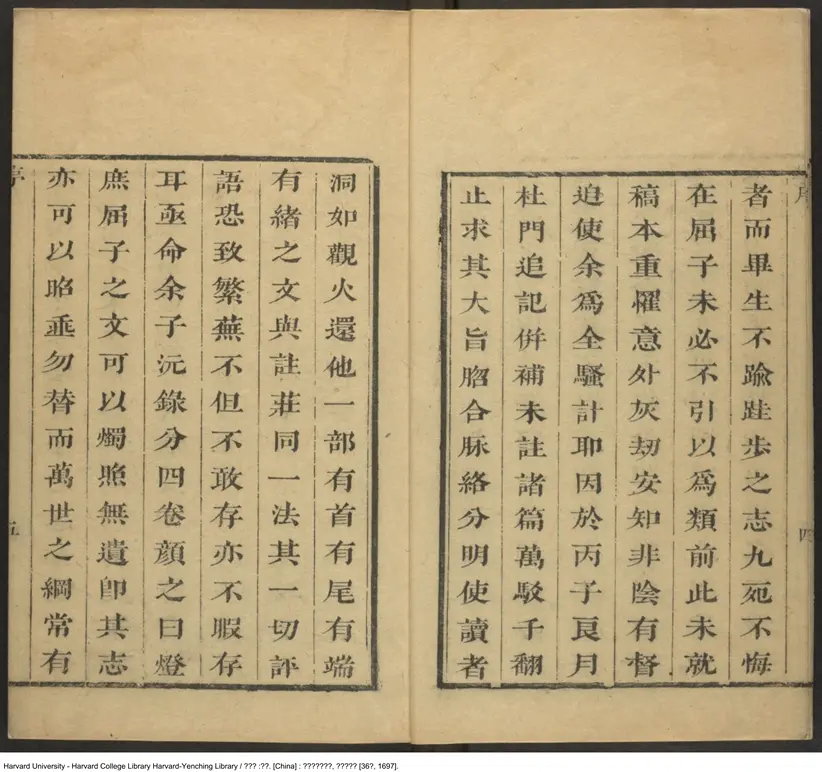 者而畢生不踰跬步之志九𣦸不悔
在屈子未必不引以爲類前此未就
稿本重懼意外灰刼安知非陰有督
迫使余爲全騷計耶因於丙子良月
杜門追記倂補未註諸篇萬駁千翻
止求其大旨脗合脉絡分明使讀者
四
洞如觀火還他一部有首有尾有端
有緒之文與註莊同一法其一切評
語恐致繁蕪不但不敢存亦不暇存
耳亟命余子沅錄分四卷顏之曰燈
庶屈子之文可以燭照無遺卽其志
亦可以昭垂勿替而萬世之綱常有
五
Harvard University - Harvard College Library Harvard-Yenching Library / ??? :??. [China] : ???????, ????? [36?, 1697].